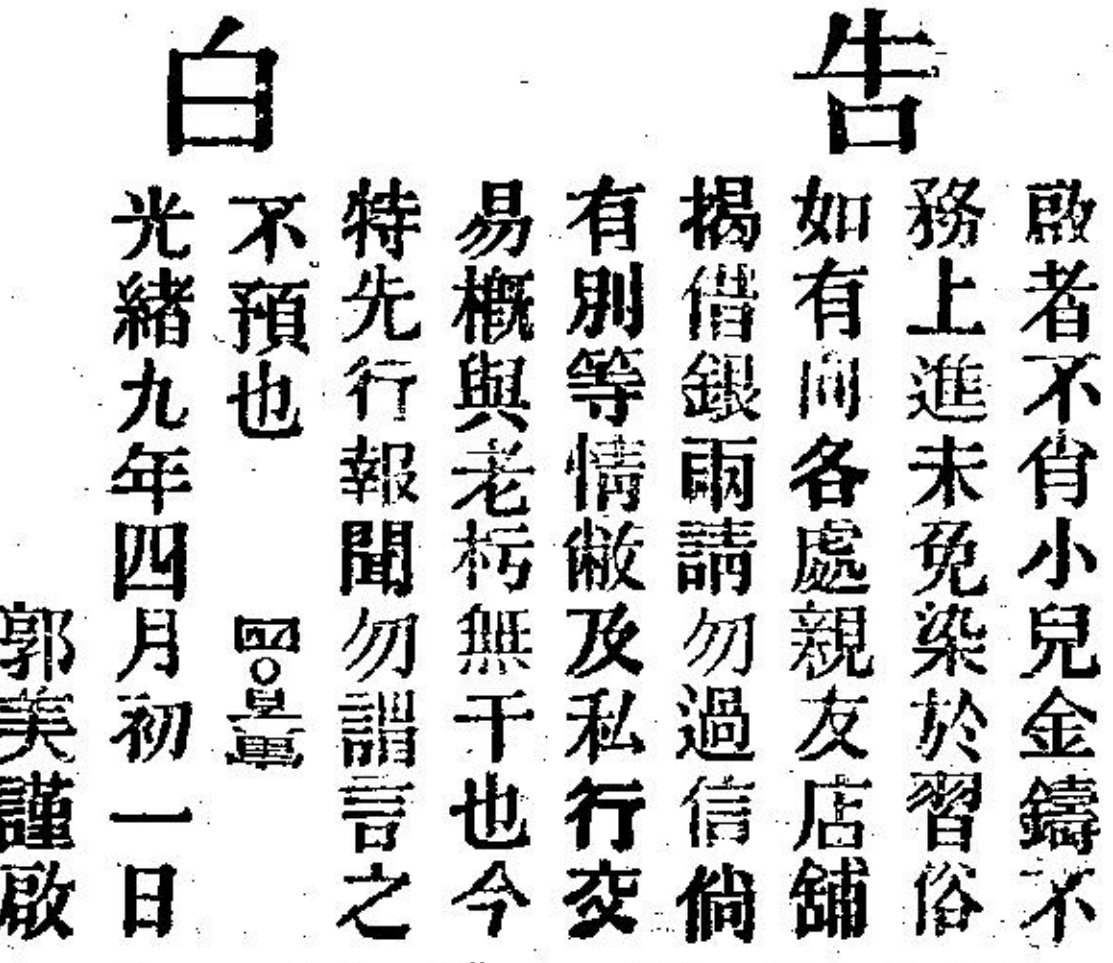 告白
啟者不肖小兒金鑄不
務上進未免染於習俗
如有向各處親友店舖
揭借銀兩請勿過信倘
有別等情敝及私行交
易概與老朽無干也今
特先行報聞勿謂言之
不預也
光緒九年四月初一日
郭美謹啟